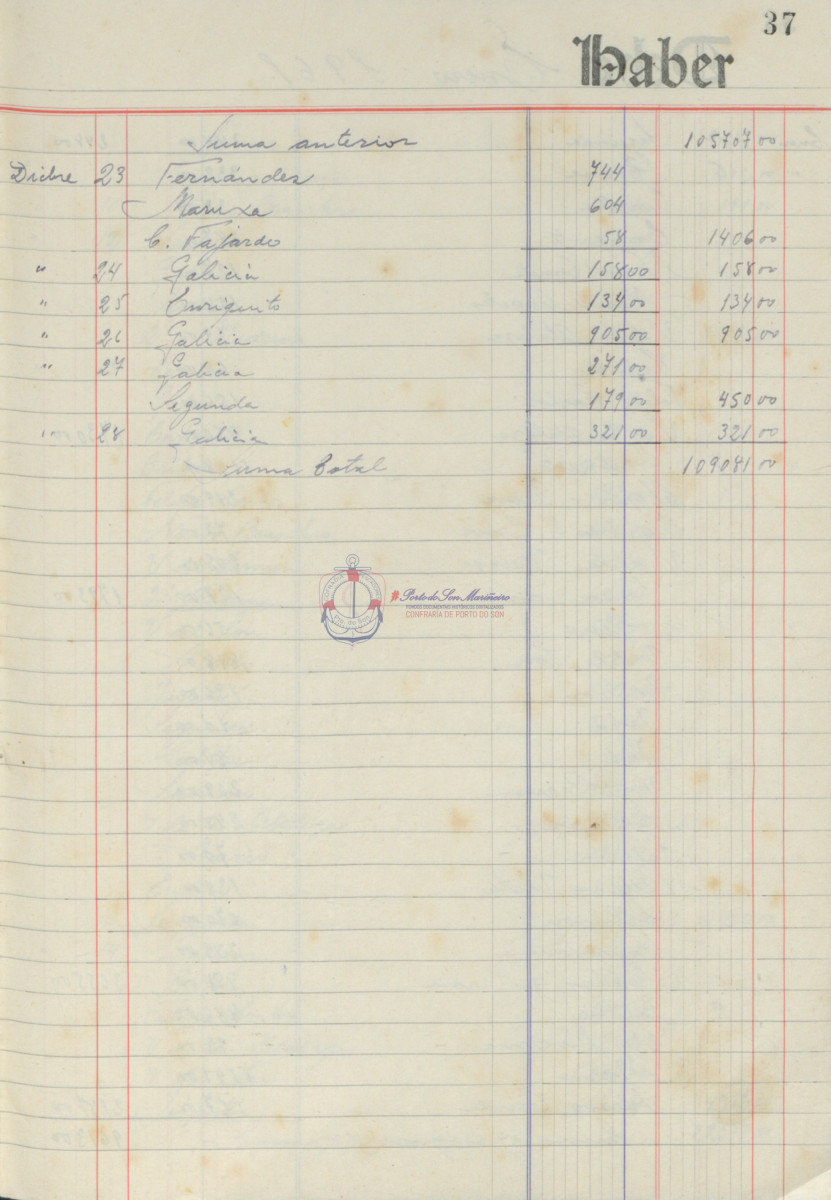 37
Haber
Suma anterior 105707 00
Dicbre 23 Fernández 744
Maruxa 604
C. Fajardo 58 1406 00
" 24 Galicia 158 00 158 00
" 25 Enriquito 134 00 134 00
" 26 Galicia 905 00 905 00
" 27 Galicia 271 00
Segunda 179 00 450 00
" 28 Galicia 321 00 321 00
Suma Total 109081 00
Porto do Son Mariñeiro
FONDOS DOCUMENTAIS HISTÓRICOS DIXITALIZADOS
CONFRARÍA DE PORTO DO SON
Pto. do Son